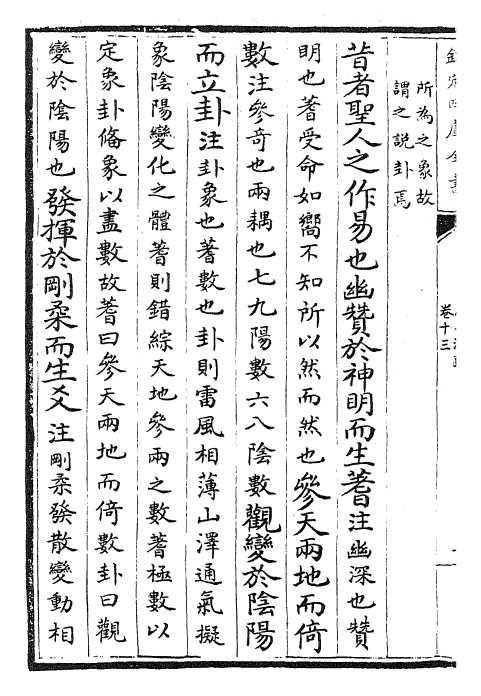 欽定四庫全書
卷十三
所為之象故
謂之説卦焉
昔者聖人之作易也幽贊於神明而生蓍注幽深也贊
明也蓍受命如嚮不知所以然而然也參天兩地而倚
數注參奇也兩耦也七九陽數六八陰數觀變於陰陽
而立卦注卦象也蓍數也卦則雷風相薄山澤通氣擬
象陰陽變化之體蓍則錯綜天地參兩之數蓍極數以
定象卦備象以盡數故蓍曰參天兩地而倚數卦曰觀
變於陰陽也發揮於剛柔而生爻注剛柔發散變動相